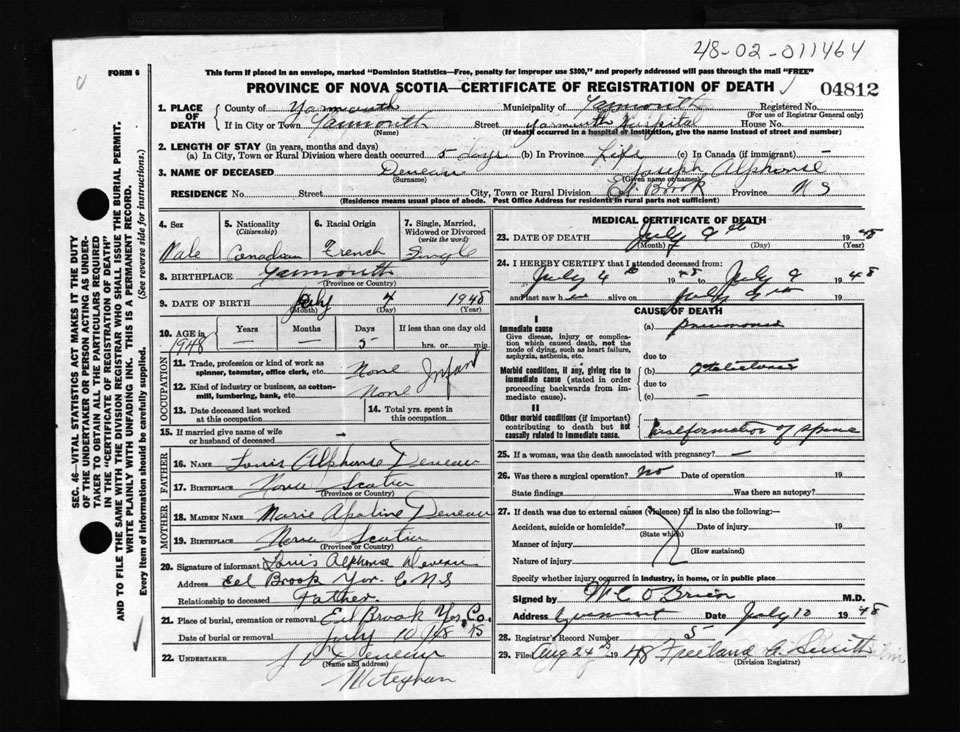 48-02-011464
FORM 6
This form if placed in an envelope, marked "Dominion Statistics—Free, penalty for improper use $300," and properly addressed will pass through the mail "FREE"
PROVINCE OF NOVA SCOTIA—CERTIFICATE OF REGISTRATION OF DEATH
04812
1. PLACE OF DEATH County of Yarmouth Municipality of Yarmouth Registered No.
(For use of Registrar General only)
If in City or Town Yarmouth Street Yarmouth Hospital House No.
(Name) (If death occurred in a hospital or institution, give the name instead of street and number)
2. LENGTH OF STAY (in years, months and days)
(a) In City, Town or Rural Division where death occurred 5 days (b) In Province Life (c) In Canada (if immigrant) —
3. NAME OF DECEASED Deneau Joseph Alphonse
(Surname) (Given name or names)
RESIDENCE No. Street City, Town or Rural Division Eel Brook Province N S
(Residence means usual place of abode. Post Office Address for residents in rural parts not sufficient)
4. Sex Male
5. Nationality (Citizenship) Canadian
6. Racial Origin French
7. Single, Married, Widowed or Divorced (write the word) Single
8. BIRTHPLACE Yarmouth
(Province or Country)
9. DATE OF BIRTH July 4 1948
(Month) (Day) (Year)
10. AGE in 1948 Years — Months — Days 5 If less than one day old hrs. or min.
OCCUPATION
11. Trade, profession or kind of work as spinner, teamster, office clerk, etc. None Infant
12. Kind of industry or business, as cotton-mill, lumbering, bank, etc. None
13. Date deceased last worked at this occupation
14. Total yrs. spent in this occupation
15. If married give name of wife or husband of deceased —
FATHER
16. NAME Louis Alphonse Deneau
17. BIRTHPLACE Nova Scotia
(Province or Country)
MOTHER
18. MAIDEN NAME Marie Apoline Deneau
19. BIRTHPLACE Nova Scotia
(Province or Country)
20. Signature of informant Louis Alphonse Deveau
Address Eel Brook Yar. Co N S
Relationship to deceased Father
21. Place of burial, cremation or removal Eel Brook Yar. Co. NS
Date of burial or removal July 10/48
22. UNDERTAKER Deneau
(Name and address)
Meteghan
MEDICAL CERTIFICATE OF DEATH
23. DATE OF DEATH July 9th 1948
(Month) 7 (Day) (Year)
24. I HEREBY CERTIFY that I attended deceased from:
July 4th 1948 to July 9 1948
and last saw h im alive on July 9th
CAUSE OF DEATH
I
Immediate cause
Give disease, injury or complication which caused death, not the mode of dying, such as heart failure, asphyxia, asthenia, etc.
(a) pneumonia
due to
Morbid conditions, if any, giving rise to immediate cause (stated in order proceeding backwards from immediate cause).
(b) Atelectasis
due to
(c) —
II
Other morbid conditions (if important) contributing to death but not causally related to immediate cause.
malformation of spine
25. If a woman, was the death associated with pregnancy? —
26. Was there a surgical operation? No Date of operation 19
State findings Was there an autopsy?
27. If death was due to external causes (Violence) fill in also the following:—
Accident, suicide or homicide? Date of injury 19
(State which)
Manner of injury
(How sustained)
Nature of injury
Specify whether injury occurred in industry, in home, or in public place
Signed by M C O'Brien M.D.
Address Date July 10 1948
28. Registrar's Record Number 5
29. Filed Aug 24th 1948 Freeland A. Smith
(Division Registrar)
SEC. 46—VITAL STATISTICS ACT MAKES IT THE DUTY OF THE UNDERTAKER OR PERSON ACTING AS UNDERTAKER TO OBTAIN ALL THE PARTICULARS REQUIRED IN THE "CERTIFICATE OF REGISTRATION OF DEATH" AND TO FILE THE SAME WITH THE DIVISION REGISTRAR WHO SHALL ISSUE THE BURIAL PERMIT.
WRITE PLAINLY WITH UNFADING INK. THIS IS A PERMANENT RECORD.
Every item of information should be carefully supplied. (See reverse side for instructions.)